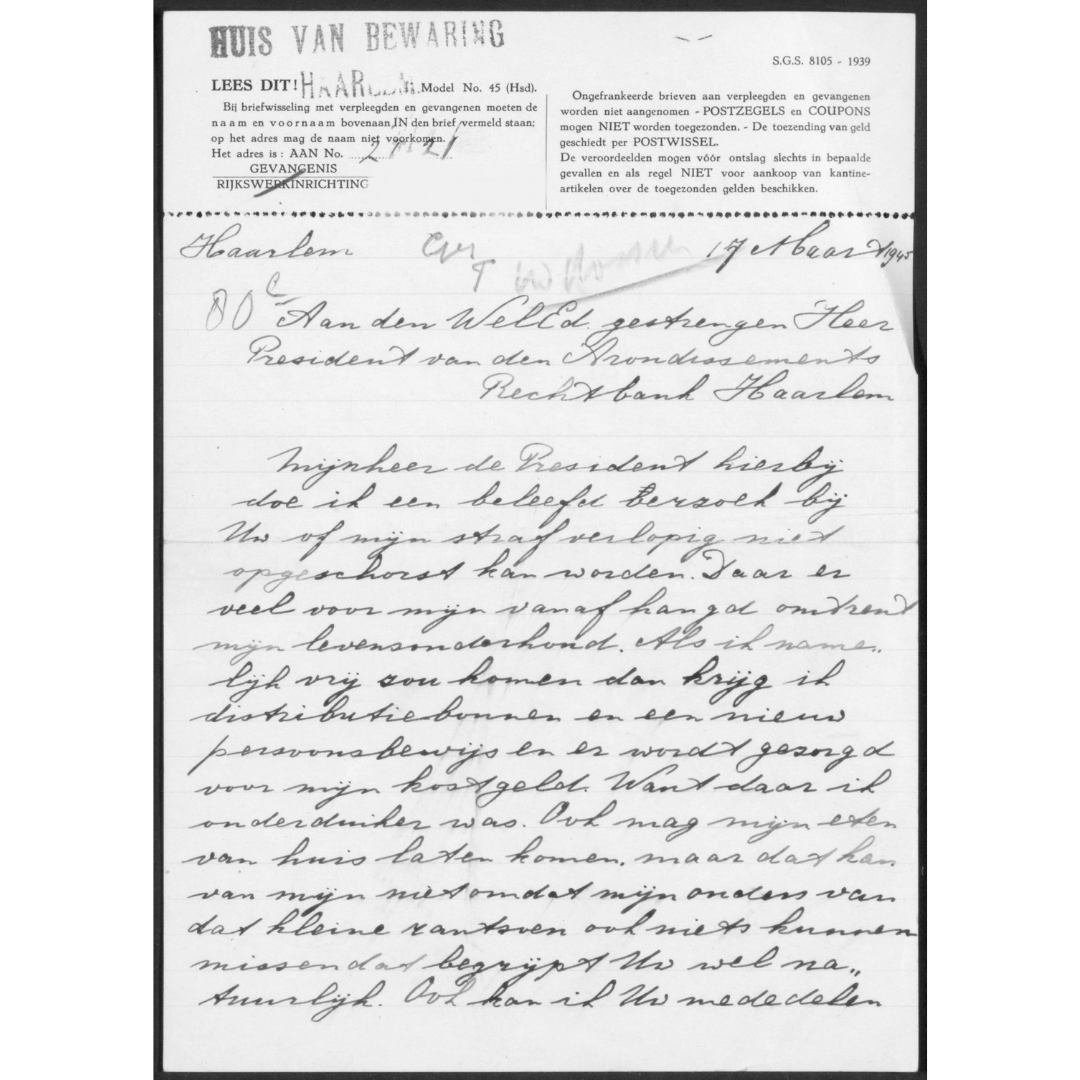 HUIS VAN BEWARING
HAARLEM
S.G.S. 8105 - 1939
LEES DIT! Model No. 45 (Hsd).
Bij briefwisseling met verpleegden en gevangenen moeten de
naam en voornaam bovenaan IN den brief vermeld staan;
op het adres mag de naam niet voorkomen.
Het adres is: AAN No. 2 21
GEVANGENIS
RIJKSWERKINRICHTING
Ongefrankeerde brieven aan verpleegden en gevangenen
worden niet aangenomen - POSTZEGELS en COUPONS
mogen NIET worden toegezonden. - De toezending van geld
geschiedt per POSTWISSEL.
De veroordeelden mogen vóór ontslag slechts in bepaalde
gevallen en als regel NIET voor aankoop van kantine-
artikelen over de toegezonden gelden beschikken.
Haarlem 17 Maart 1945
80 c
Aan den WelEd. gestrengen Heer
President van den Arondissements
Rechtbank Haarlem
Mijnheer de President hierbij
doe ik een beleefd verzoek bij
Uw of mijn straf verlopig niet
opgeschorst kan worden. Daar er
veel voor mijn vanaf hangd omtrent
mijn levensonderhoud. Als ik name„
lijk vrij zou komen dan krijg ik
distributiebonnen en een nieuw
persoonsbewijs en er wordt gezorgd
voor mijn kostgeld. Want daar ik
onderduiker was. Ook mag mijn eten
van huis laten komen. maar dat kan
van mijn niet omdat mijn ouders van
dat kleine rantsoen ook niets kunnen
missen dat begrijpt Uw wel na„
tuurlijk. Ook kan ik Uw mededelen